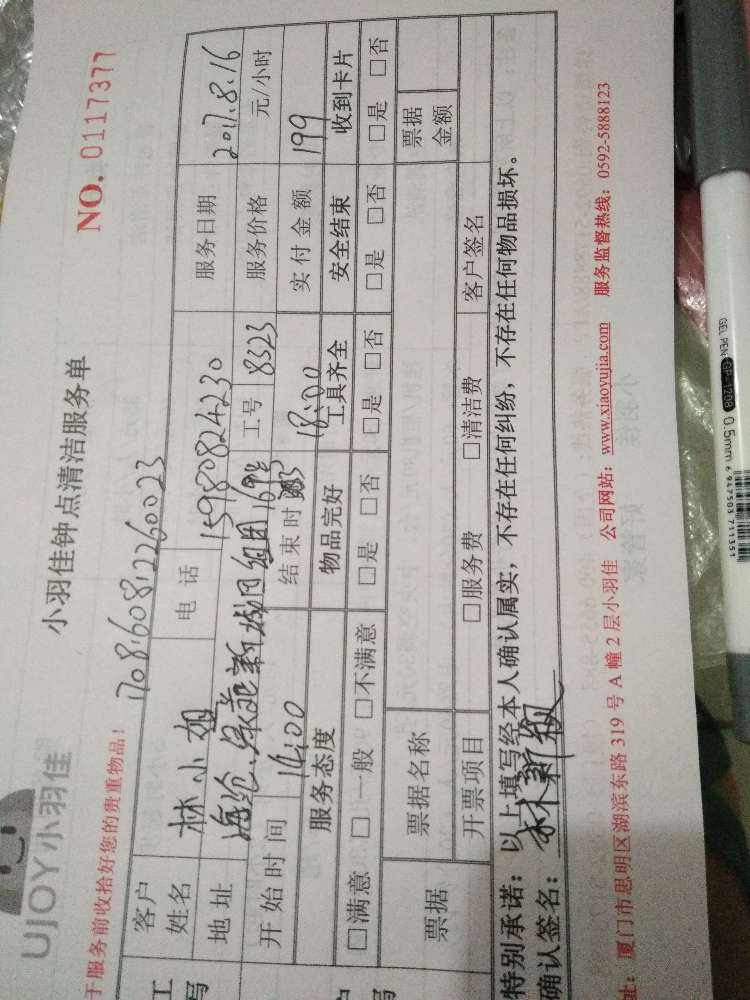 UJOY小羽佳
小羽佳钟点清洁服务单
NO. 0117377
于服务前收拾好您的贵重物品!
1708160812260023
客户姓名 林小姐 电话 15980824230 服务日期 2017.8.16
地址 海沧.绿苑新城 工号 8323 服务价格 元/小时
开始时间 14:00 结束时 18:00 实付金额 199
服务态度 物品完好 工具齐全 安全结束 收到卡片
□满意 □一般 □不满意 □是 □否 □是 □否 □是 □否 □是 □否
票据 票据名称 票据金额
开票项目 □服务费 □清洁费 客户签名
特别承诺:以上填写经本人确认属实,不存在任何纠纷,不存在任何物品损坏。
确认签名:
址:厦门市思明区湖滨东路 319 号 A 幢 2 层小羽佳 公司网站:www.xiaoyujia.com 服务监督热线:0592-5888123
GEL PEN GP-1208 0.5mm 6 947503 711351